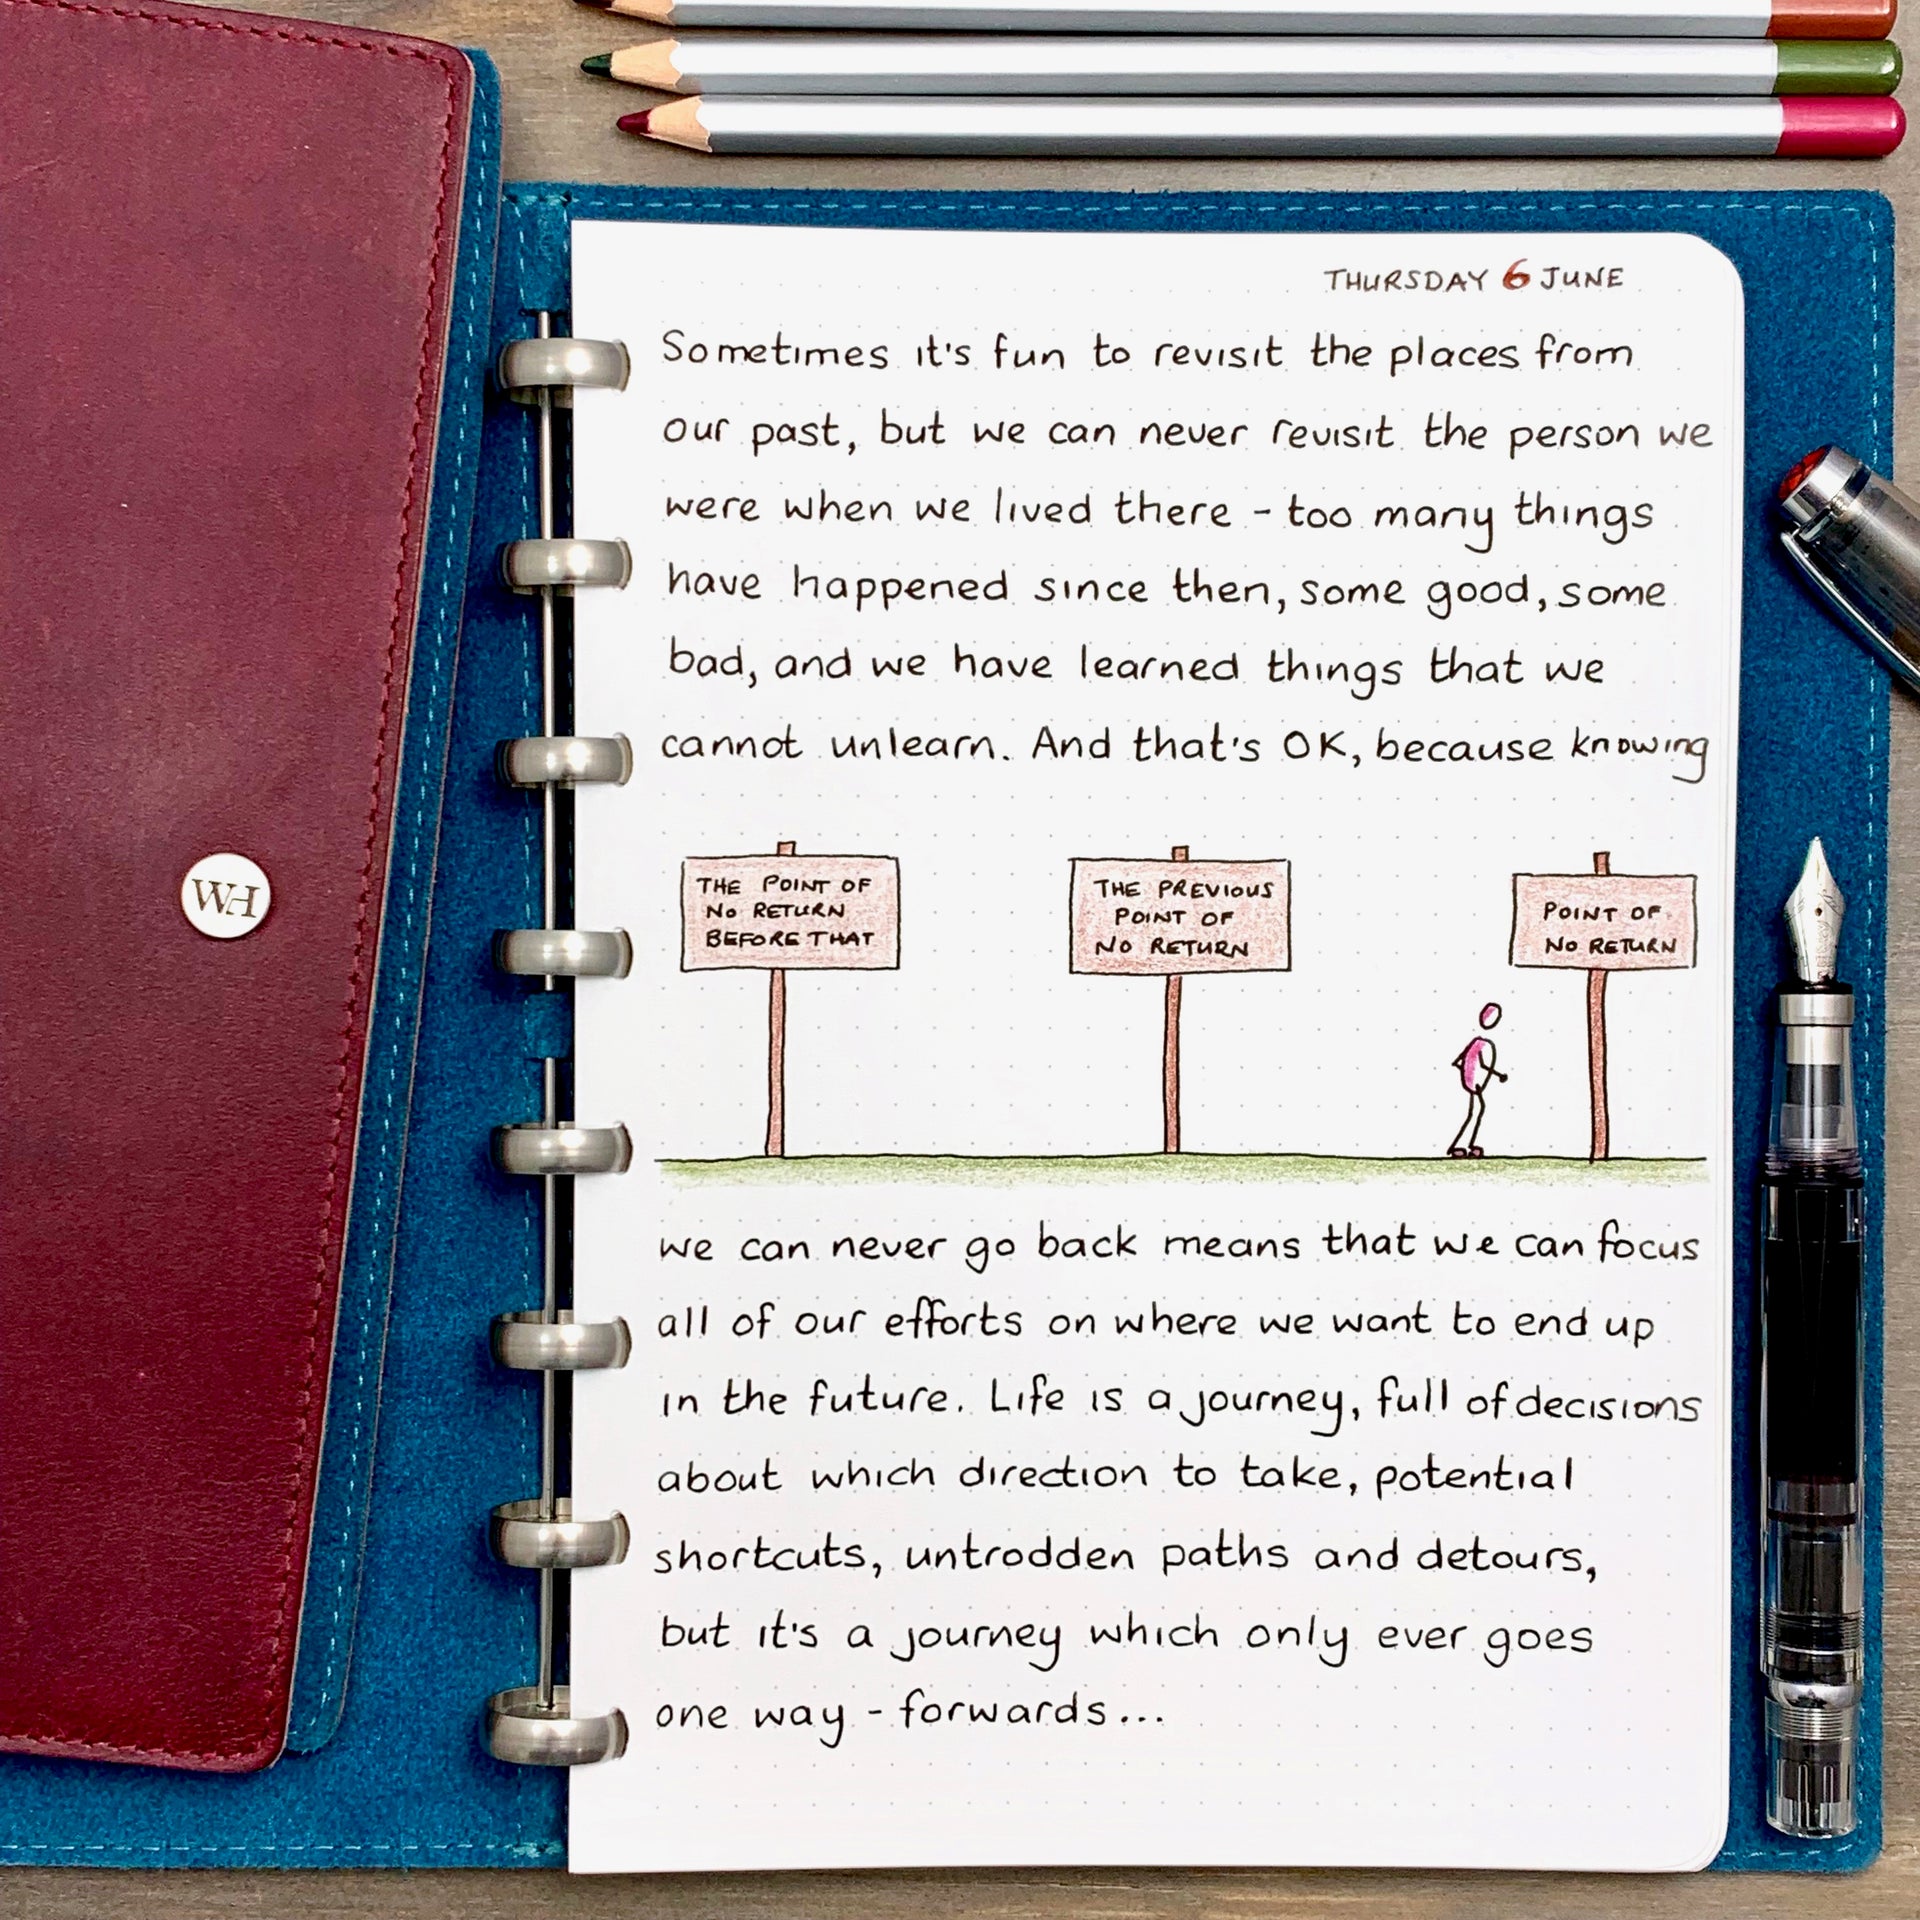 THURSDAY 6 JUNE
Sometimes it's fun to revisit the places from
our past, but we can never revisit the person we
were when we lived there - too many things
have happened since then, some good, some
bad, and we have learned things that we
cannot unlearn. And that's OK, because knowing
THE POINT OF
NO RETURN
BEFORE THAT
THE PREVIOUS
POINT OF
NO RETURN
POINT OF
NO RETURN
WH
we can never go back means that we can focus
all of our efforts on where we want to end up
in the future. Life is a journey, full of decisions
about which direction to take, potential
shortcuts, untrodden paths and detours,
but it's a journey which only ever goes
one way - forwards...